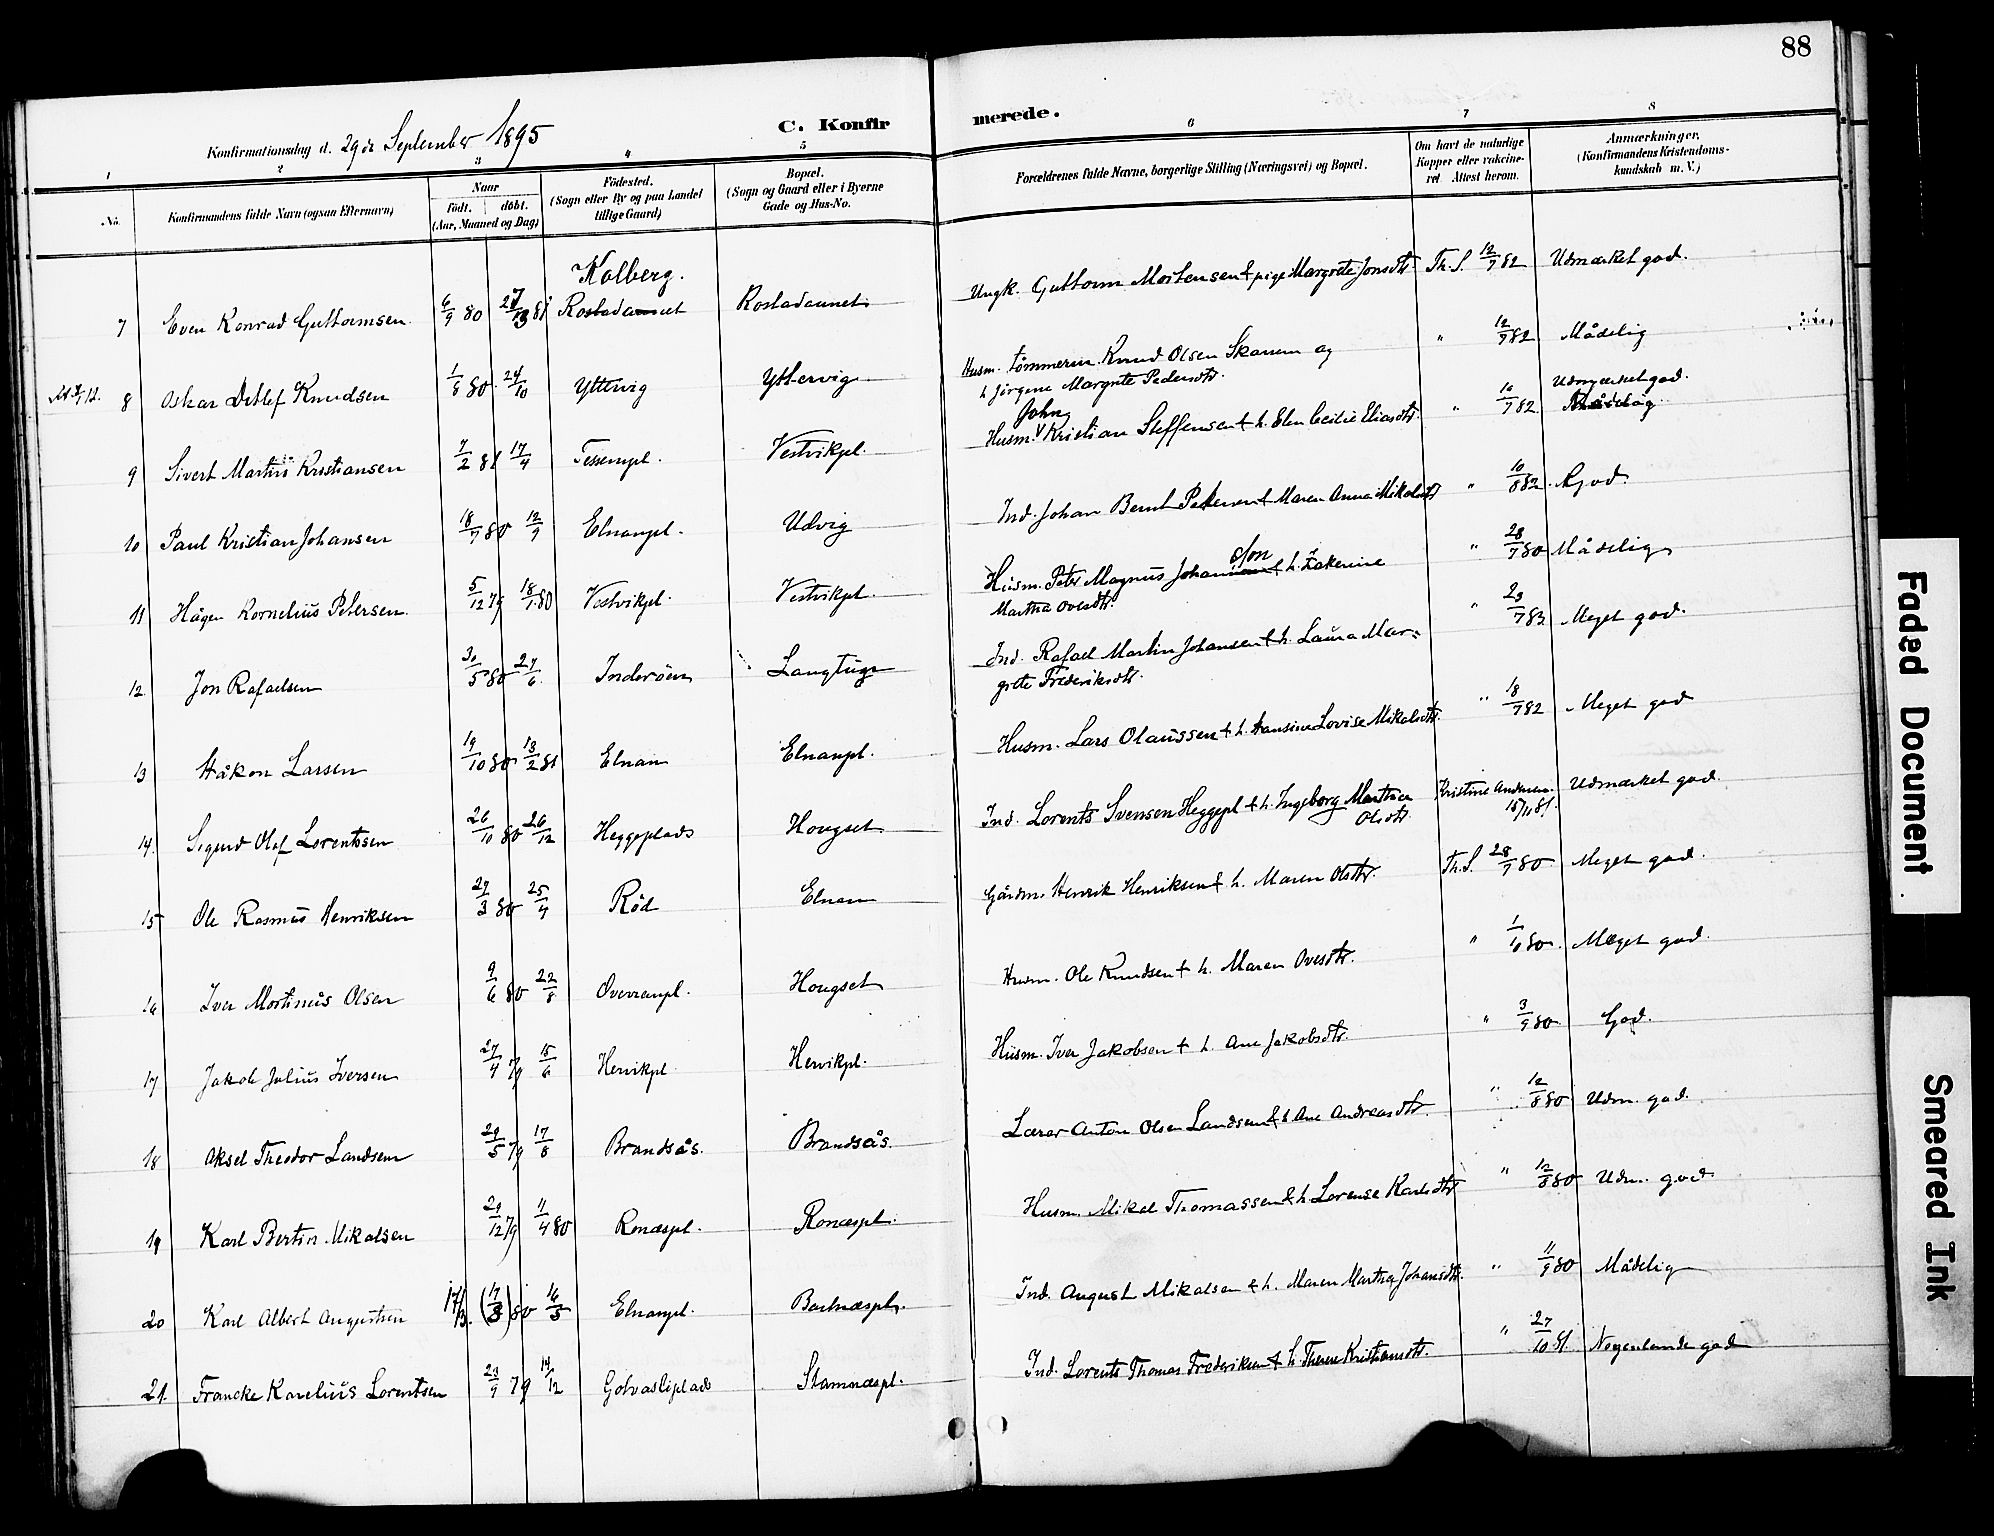 88
C. Konfirmerede.
Konfirmationsdag d. 29de September 1895
1 2 3 4 5 6 7 8
No. Konfirmandens fulde Navn (ogsaa Efternavn) Naar födt. döbt. (Aar, Maaned og Dag) Födested. (Sogn eller By og paa Landet tillige Gaard) Bopæl. (Sogn og Gaard eller i Byerne Gade og Hus-No. Forældrenes fulde Navne, borgerlige Stilling (Næringsvei) og Bopæl. Om havt de naturlige Kopper eller vakcineret Attest herom. Anmærkninger, (Konfirmandens Kristendomskundskab m. V.)
Kolberg.
7 Even Konrad Guttormsen 6/9 80 81 Rostadaunet Rostadaunet Ungk. Guttorm Mortensen & pige Margrete Jonsdtr. Th. S. 12/7 82 Udmærket god.
8 Oskar Detlef Knudsen 1/8 80 24/10 Yttervig Yttervig Husm. tømmerm. Knud Olsen Skanem og
h. Jørgine Margrete Pedersdtr. " 12/7 82 Mådelig
9 Sivert Martin Kristiansen 7/2 81 17/4 Tessempl. Vestvikpl. Husm. John Kristian Steffensen & h. Elen Cecilie Eliasdtr. " 10/7 82 Udmærket god.
10 Paul Kristian Johansen 18/7 80 12/9 Elnanpl. Udvig Ind. Johan Bernt Petersen & Maren Anna Mikalsdtr " 10/8 82 God.
11 Hågen Kornelius Petersen 5/12 79 18/1 80 Vestvikpl. Vestvikpl. Husm. Peter Magnus Johanson & h. Zakerine
Martha Ovesdtr. " 28/7 80 Mådelig
12 Jon Rafaelsen 30/5 80 27/6 Inderøen Langtug Ind. Rafael Martin Johansen & h. Laura Mar-
grete Frederiksdtr. " 23/7 83 Meget god.
13 Håkon Larsen 19/10 80 13/2 81 Elnan Elnanpl. Husm. Lars Olaussen & h. Hansine Lovise Mikalsdtr. " 18/7 82 Meget god
14. Sigurd Olaf Lorentssen 26/10 80 26/12 Heggeplads Hougset Ind. Lorents Svensen Heggepl & h. Ingeborg Martha
Olsdtr. Kristine Andersen 15/11 81. Udmærket god.
15 Ole Rasmus Henriksen 27/3 80 25/4 Rød Elnan Gårdm. Henrik Henriksen & h. Maren Olsdtr. Th. S. 28/7 80 Meget god.
16 Iver Mortinus Olsen 9/6 80 22/8 Overrenpl. Hougset Husm. Ole Knudsen & h. Maren Ovesdtr. " 1/10 80 Meget god.
17 Jakob Julius Iversen 27/4 79 15/6 Hervikpl Hervikpl. Husm. Iver Jakobsen & h. Ane Jakobsdtr. " 3/9 80 God.
18 Aksel Theodor Landsem 29/5 79 17/8 Brandsås. Brandsås. Lærer Anton Olsen Landsem & h Ane Andreasdtr. " 12/8 80 Udm. god.
19 Karl Bertin Mikalsen 29/12 79 11/4 80 Renæspl. Renæspl. Husm. Mikal Thomassen & h. Lorense Karlsdtr " 12/8 80 Udm. god
20 Karl Albert Augustsen 17/3. (17/3) 80 16/5 Elnanpl. Badnæspl. Ind. August Mikalsen & h. Maren Martha Johansdtr. " 11/9 80 Mådelig
21. Francke Karelius Lorentsen 23/9 79 14/12 Golvasliplads Stamnæspl. Ind. Lorents Thomas Frederiksen & h. Therese Kristiansdtr. " 27/10 81. Nogenlunde god
Faded Document
Smeared Ink